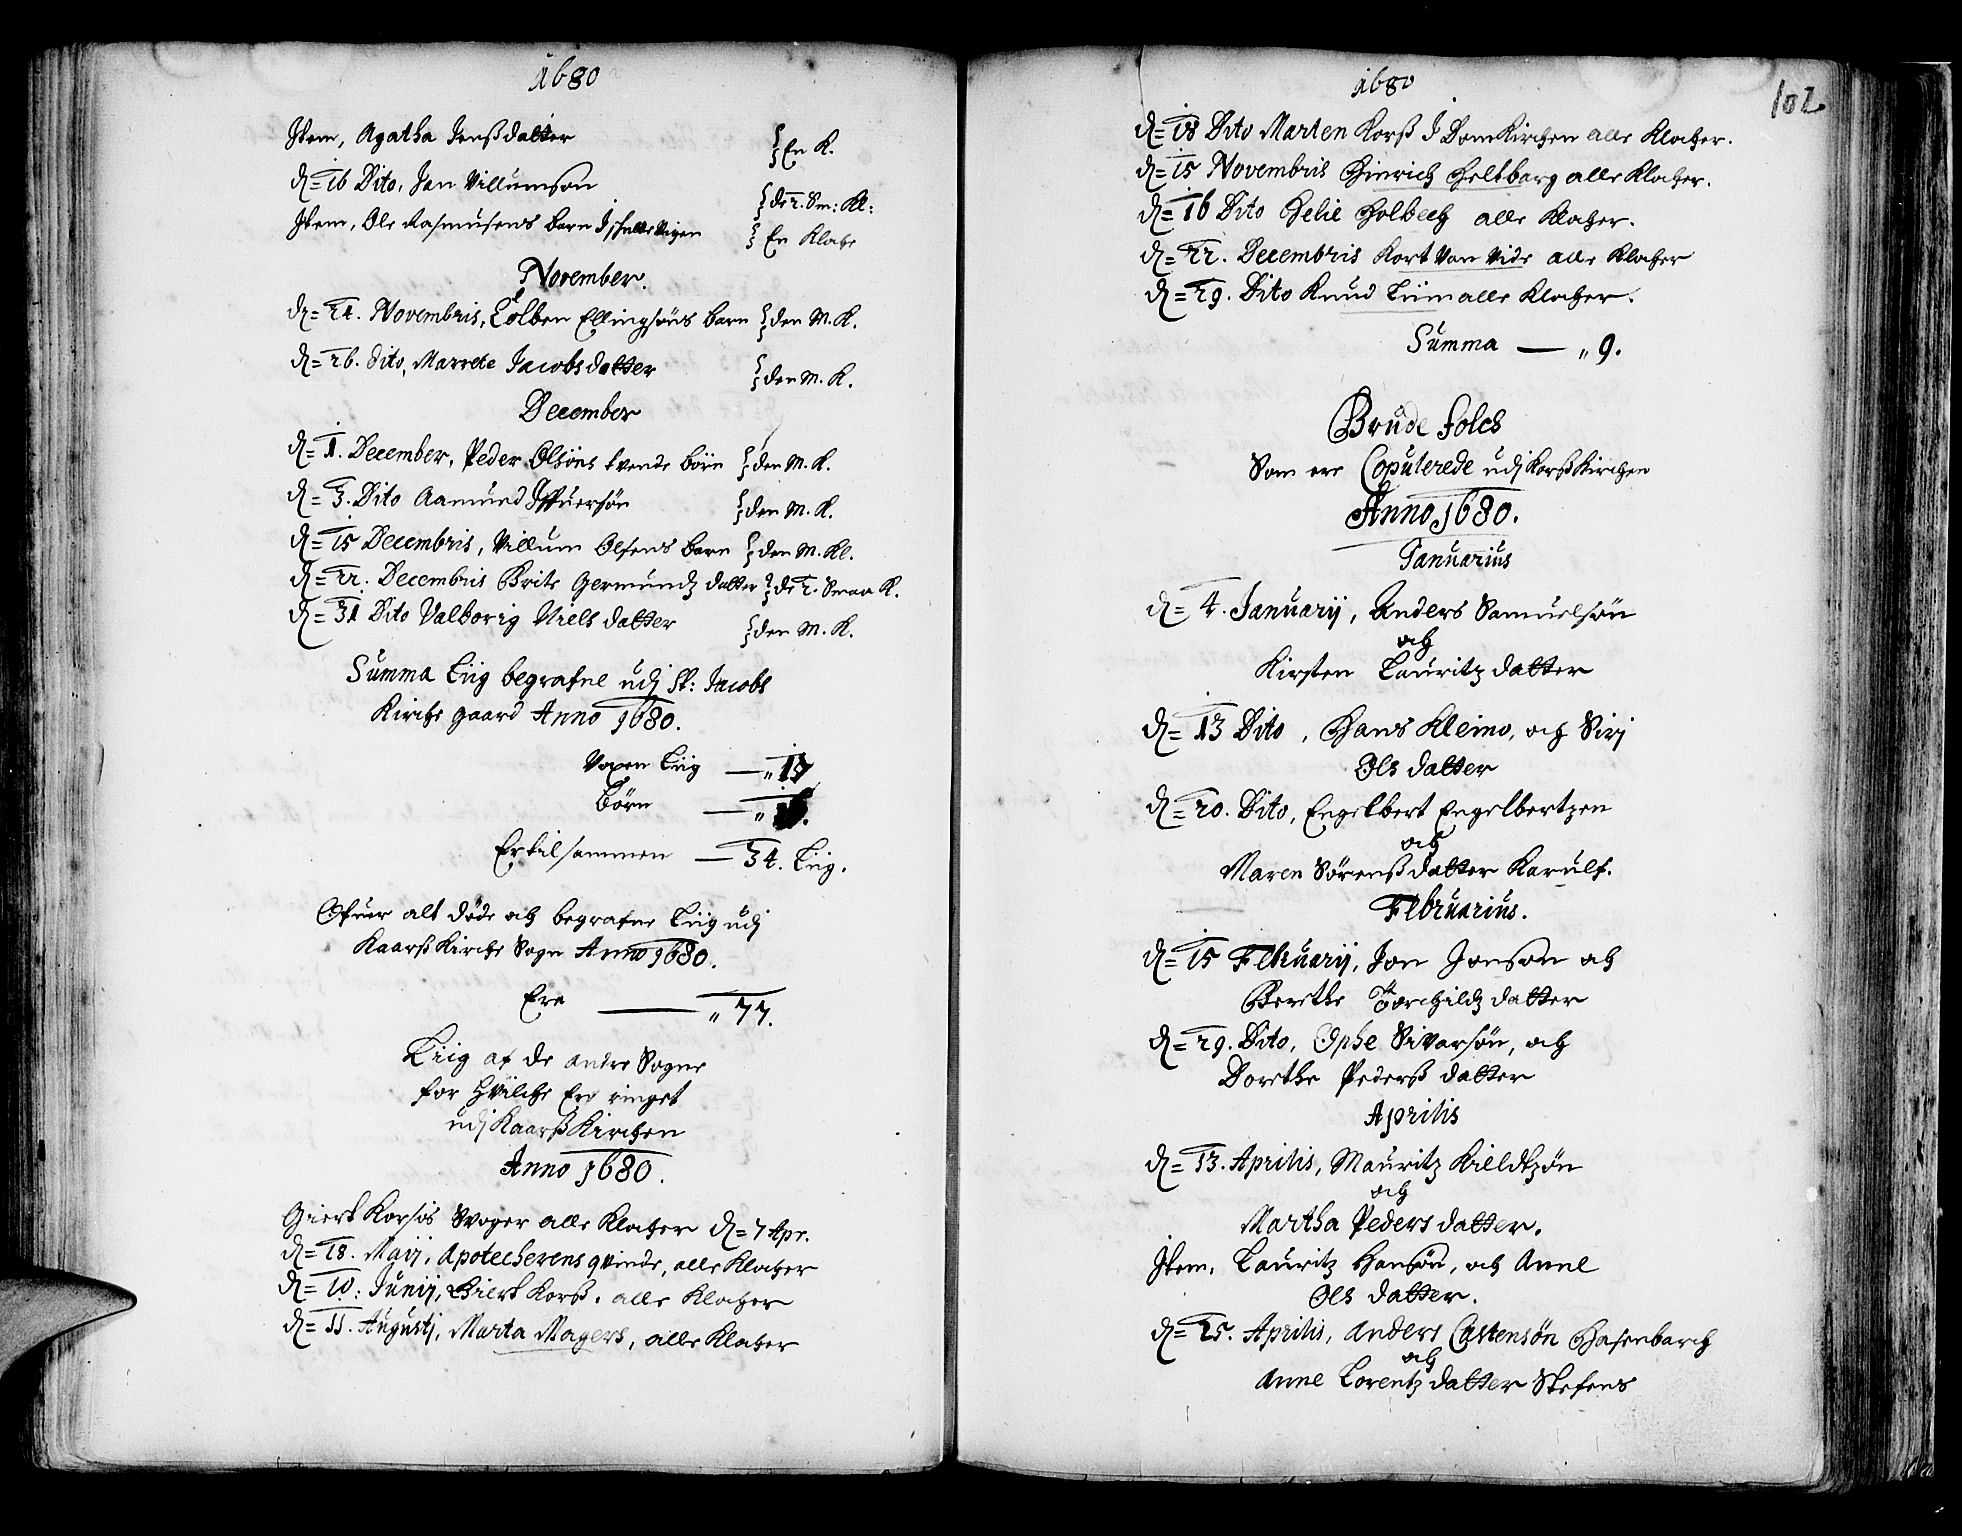 1680
Item, Agatha Jenßdatter } En K.
d= 16 Dito, Jan Villumsøn } de 2. Sm: Kl:
Item, Ole Rasmusens barn } En Klocke
November.
d= 24. Novembris, Colben Ellingsøns barn } den M. K.
d= 26. Dito, Marrete Jacobsdatter } den M. K.
December
d= 1. December, Peder Olsøns tvende børn } den M. K.
d= 3. Dito Aamund Iffuersøn } den M. K.
d= 15 Decembris, Villum Olsens barn } den M. Kl.
d= 22. Decembris Brite Germundz datter } de 2. Smaa K.
d= 31 Dito Valborig Niels datter } den M. K.
Summa Liig begrafne udj St: Jacobs
Kirche gaard Anno 1680.
Voxen Liig — „ 19
Børn — „
Er tilsammen — 34. Liig.
Ofuer alt døde och begrafne Liig udj
Kaarß Kirche Sogn Anno 1680.
Ere — „ 77.
Liig af de andre Sogne
for hvilche Ere ringet
udj Kaarß Kirchen
Anno 1680.
Giert Korsis Svoger alle Klocher d= 7 Apr.
d= 18. Maij, Apotecherens qvinde, alle Klocher
d= 10: Junij, Giert Korß. alle Klocher
d= 11. Augustj, Marta Mayers, alle Klocher
1680
102
d= 18 Dito Marten Korß J Domkirchen alle Klocher.
d= 15 Novembris Hinrich Heltbarg alle Klocher.
d= 16 Dito Helie Holbech alle Klocher.
d= 22. Decembris Kort Von Vide alle Klocher
d= 29. Dito Knud Tiim alle Klocher.
Summa — „ 9.
Brude folch
Som ere Copulerede udj Korß Kirchen
Anno 1680.
Januarius
d= 4. Januarij, Anders Samuelsøn
och
Kirsten Lauritz datter
d= 13 Dito, Hans Kleino, och Sirj
Ols datter
d= 20. Dito, Engelbert Engelbertzen
och
Maren Sørenß datter Karulf.
Februarius.
d= 15 Februarij, Jon Jonsøn och
Berethe Torchildz datter
d= 29. Dito, Ophe Sivarsøn, och
Dorethe Pederß datter
Aprilis
d= 13. Aprilis, Mauritz Kieldtzøn
och
Martha Peders datter.
Item, Lauritz Hansøn, och Anne
Ols datter.
d= 25. Aprilis, Anders Castensøn Hasenbarch
och
Anne Lorentz datter Stefens